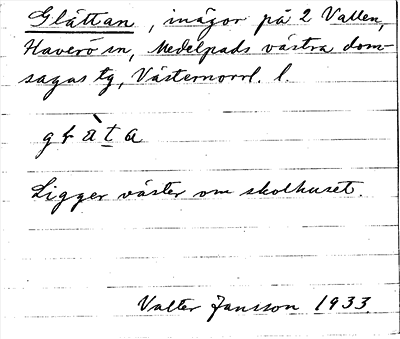 Glåttan, inägor på 2 Vallen,
Haverö sn, Medelpads västra dom-
sagas tg, Västernorrl. l.
Ligger väster om skolhuset.
Valter Jansson 1933.